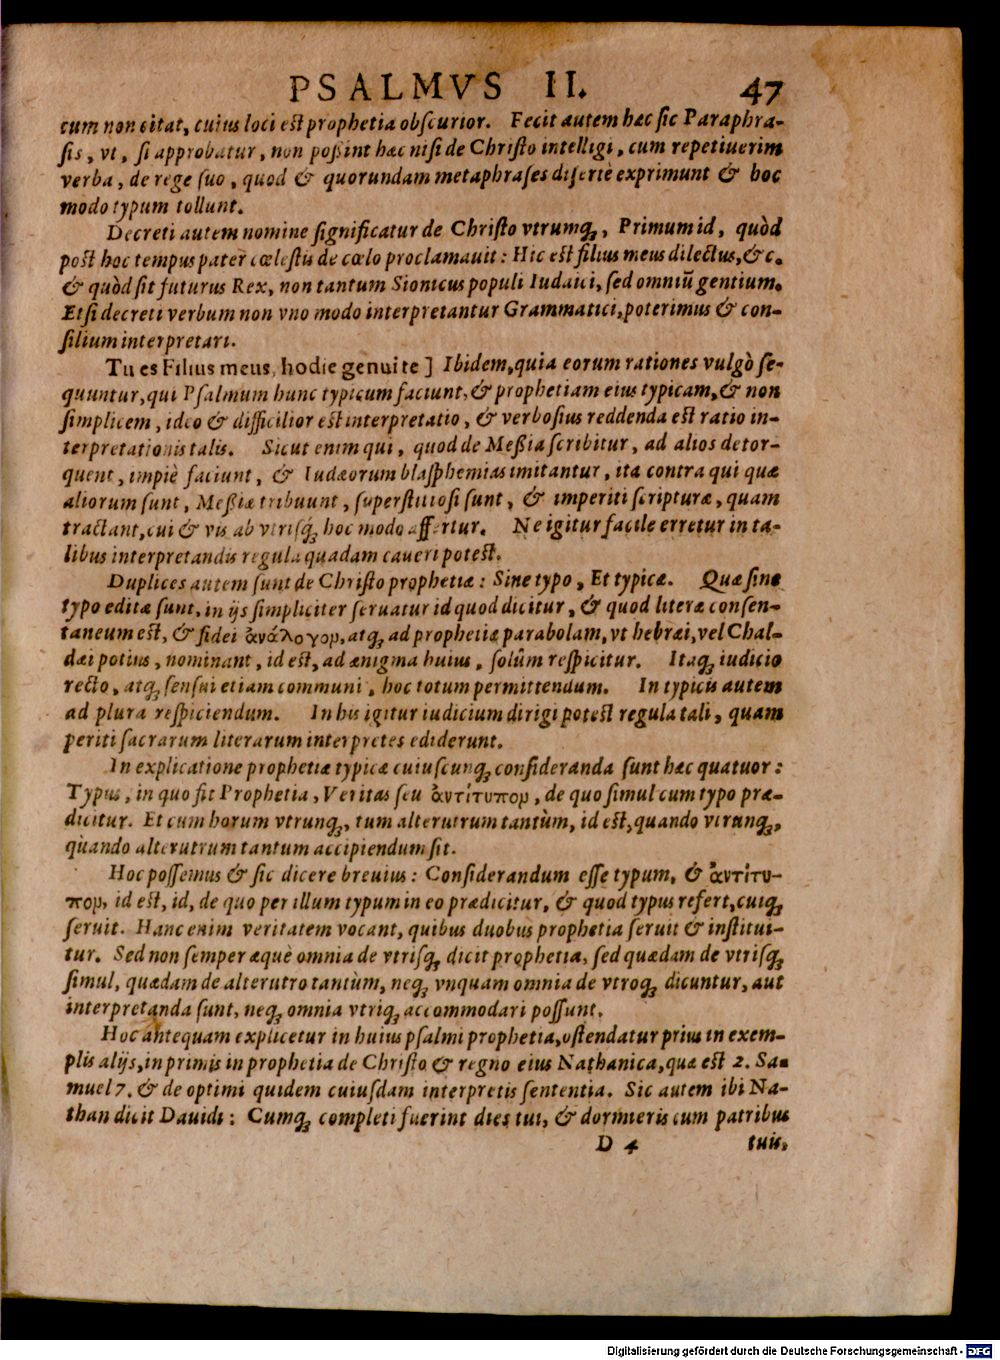 PSALMVS II. 47
cum non citat, cuius loci est prophetia obscurior. Fecit autem hæc sic Paraphra-
sis, vt, si approbatur, non poßint hæc nisi de Christo intelligi, cum repetiuerim
verba, de rege suo, quod & quorundam metaphrases disertè exprimunt & hoc
modo typum tollunt.
Decreti autem nomine significatur de Christo vtrumq́ꝫ, Primum id, quòd
post hoc tempus pater cœlestis de cœlo proclamauit: Hic est filius meus dilectus, &c.
& quòd sit futurus Rex, non tantum Sionicus populi Iudaici, sed omniū gentium.
Etsi decreti verbum non vno modo interpretantur Grammatici, poterimus & con-
silium interpretari.
Tu es Filius meus, hodie genui te ] Ibidem, quia eorum rationes vulgò se-
quuntur, qui Psalmum hunc typicum faciunt, & prophetiam eius typicam, & non
simplicem, ideo & difficilior est interpretatio, & verbosius reddenda est ratio in-
terpretationis talis. Sicut enim qui, quod de Meßia scribitur, ad alios detor-
quent, impiè faciunt, & Iudæorum blasphemias imitantur, ita contra qui quæ
aliorum sunt, Meßiæ tribuunt, superstitiosi sunt, & imperiti scripturæ, quam
tractant, cui & vis ab vtrisq́ꝫ hoc modo affertur. Ne igitur facile erretur in ta-
libus interpretandis regula quadam caueri potest.
Duplices autem sunt de Christo prophetiæ: Sine typo, Et typicæ. Quæ sine
typo editæ sunt, in ijs simpliciter seruatur id quod dicitur, & quod literæ consen-
taneum est, & fidei ἀνάλογον, atqꝫ ad prophetiæ parabolam, vt hebræi, vel Chal-
dæi potius, nominant, id est, ad ænigma huius, solùm respicitur. Itaqꝫ iudicio
recto, atqꝫ sensui etiam communi, hoc totum permittendum. In typicis autem
ad plura respiciendum. In his igitur iudicium dirigi potest regula tali, quam
periti sacrarum literarum interpretes ediderunt.
In explicatione prophetiæ typicæ cuiuscunqꝫ consideranda sunt hæc quatuor:
Typus, in quo fit Prophetia, Veritas seu ἀντίτυπον, de quo simul cum typo præ-
dicitur. Et cum horum vtrunqꝫ, tum alterutrum tantùm, id est, quando vtrunqꝫ,
quando alterutrum tantum accipiendum sit.
Hoc possemus & sic dicere breuius: Considerandum esse typum, & ἀντίτυ-
πον, id est, id, de quo per illum typum in eo prædicitur, & quod typus refert, cuiqꝫ
seruit. Hanc enim veritatem vocant, quibus duobus prophetia seruit & institui-
tur. Sed non semper æquè omnia de vtrisqꝫ dicit prophetia, sed quædam de vtrisqꝫ
simul, quædam de alterutro tantùm, neqꝫ vnquam omnia de vtroqꝫ dicuntur, aut
interpretanda sunt, neqꝫ omnia vtriqꝫ accommodari possunt.
Hoc antequam explicetur in huius psalmi prophetia, ostendatur prius in exem-
plis alijs, in primis in prophetia de Christo & regno eius Nathanica, quæ est 2. Sa-
muel 7. & de optimi quidem cuiusdam interpretis sententia. Sic autem ibi Na-
than dicit Dauidi: Cumqꝫ completi fuerint dies tui, & dormieris cum patribus
D 4 tuis,
Digitalisierung gefördert durch die Deutsche Forschungsgemeinschaft - DFG